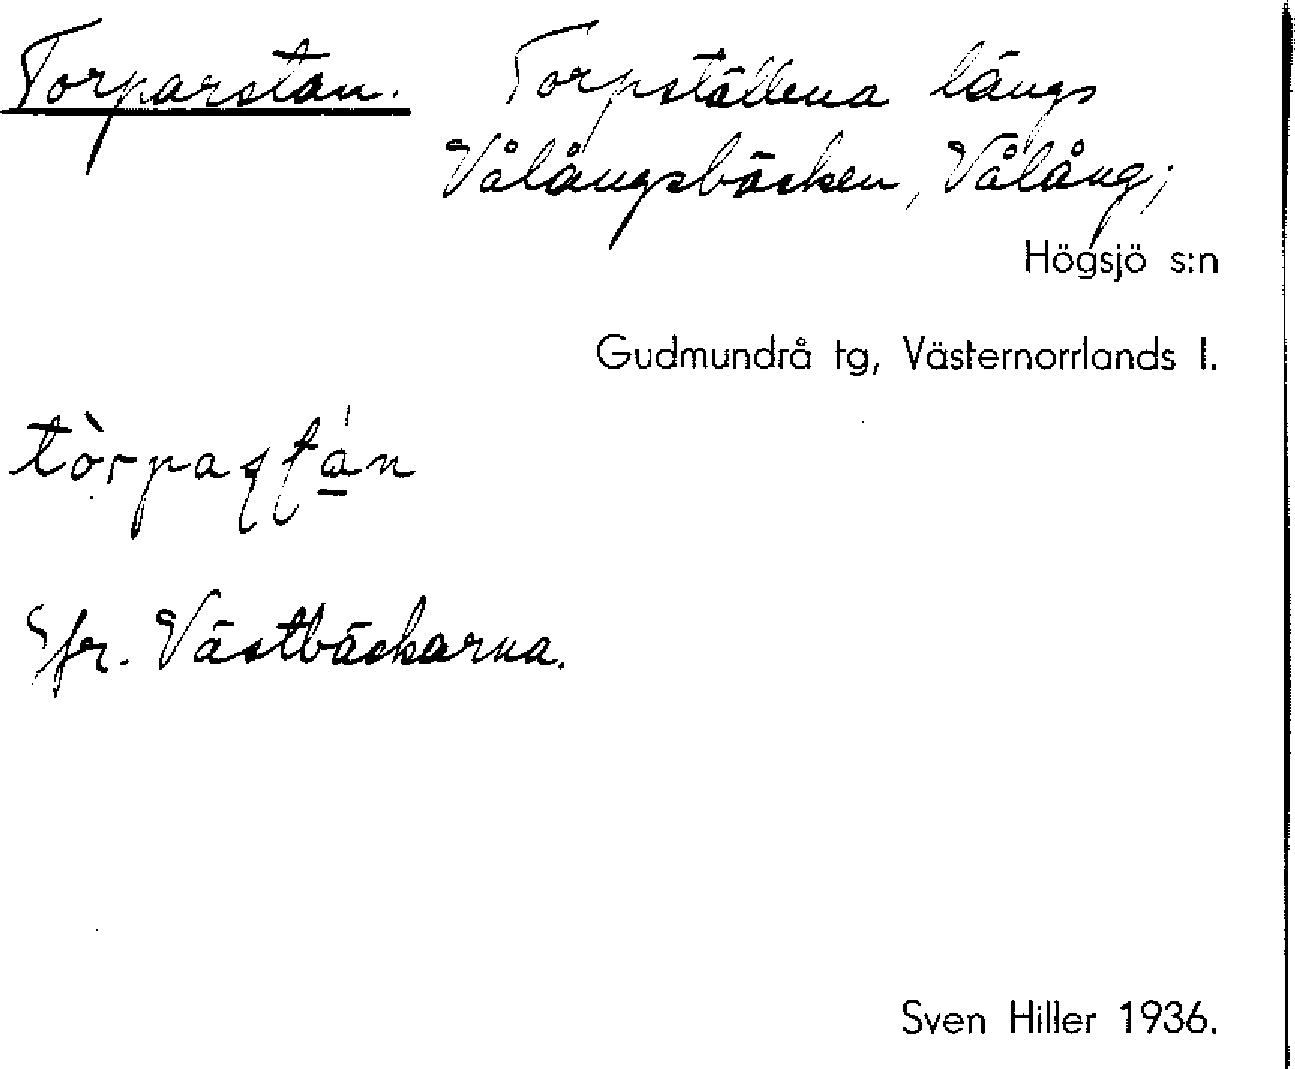 Torparstan. Torpställena längs
Vålångsbäcken, Vålång;
Högsjö s:n
Gudmundrå tg, Västernorrlands l.
Jfr. Västbäckarna.
Sven Hiller 1936.